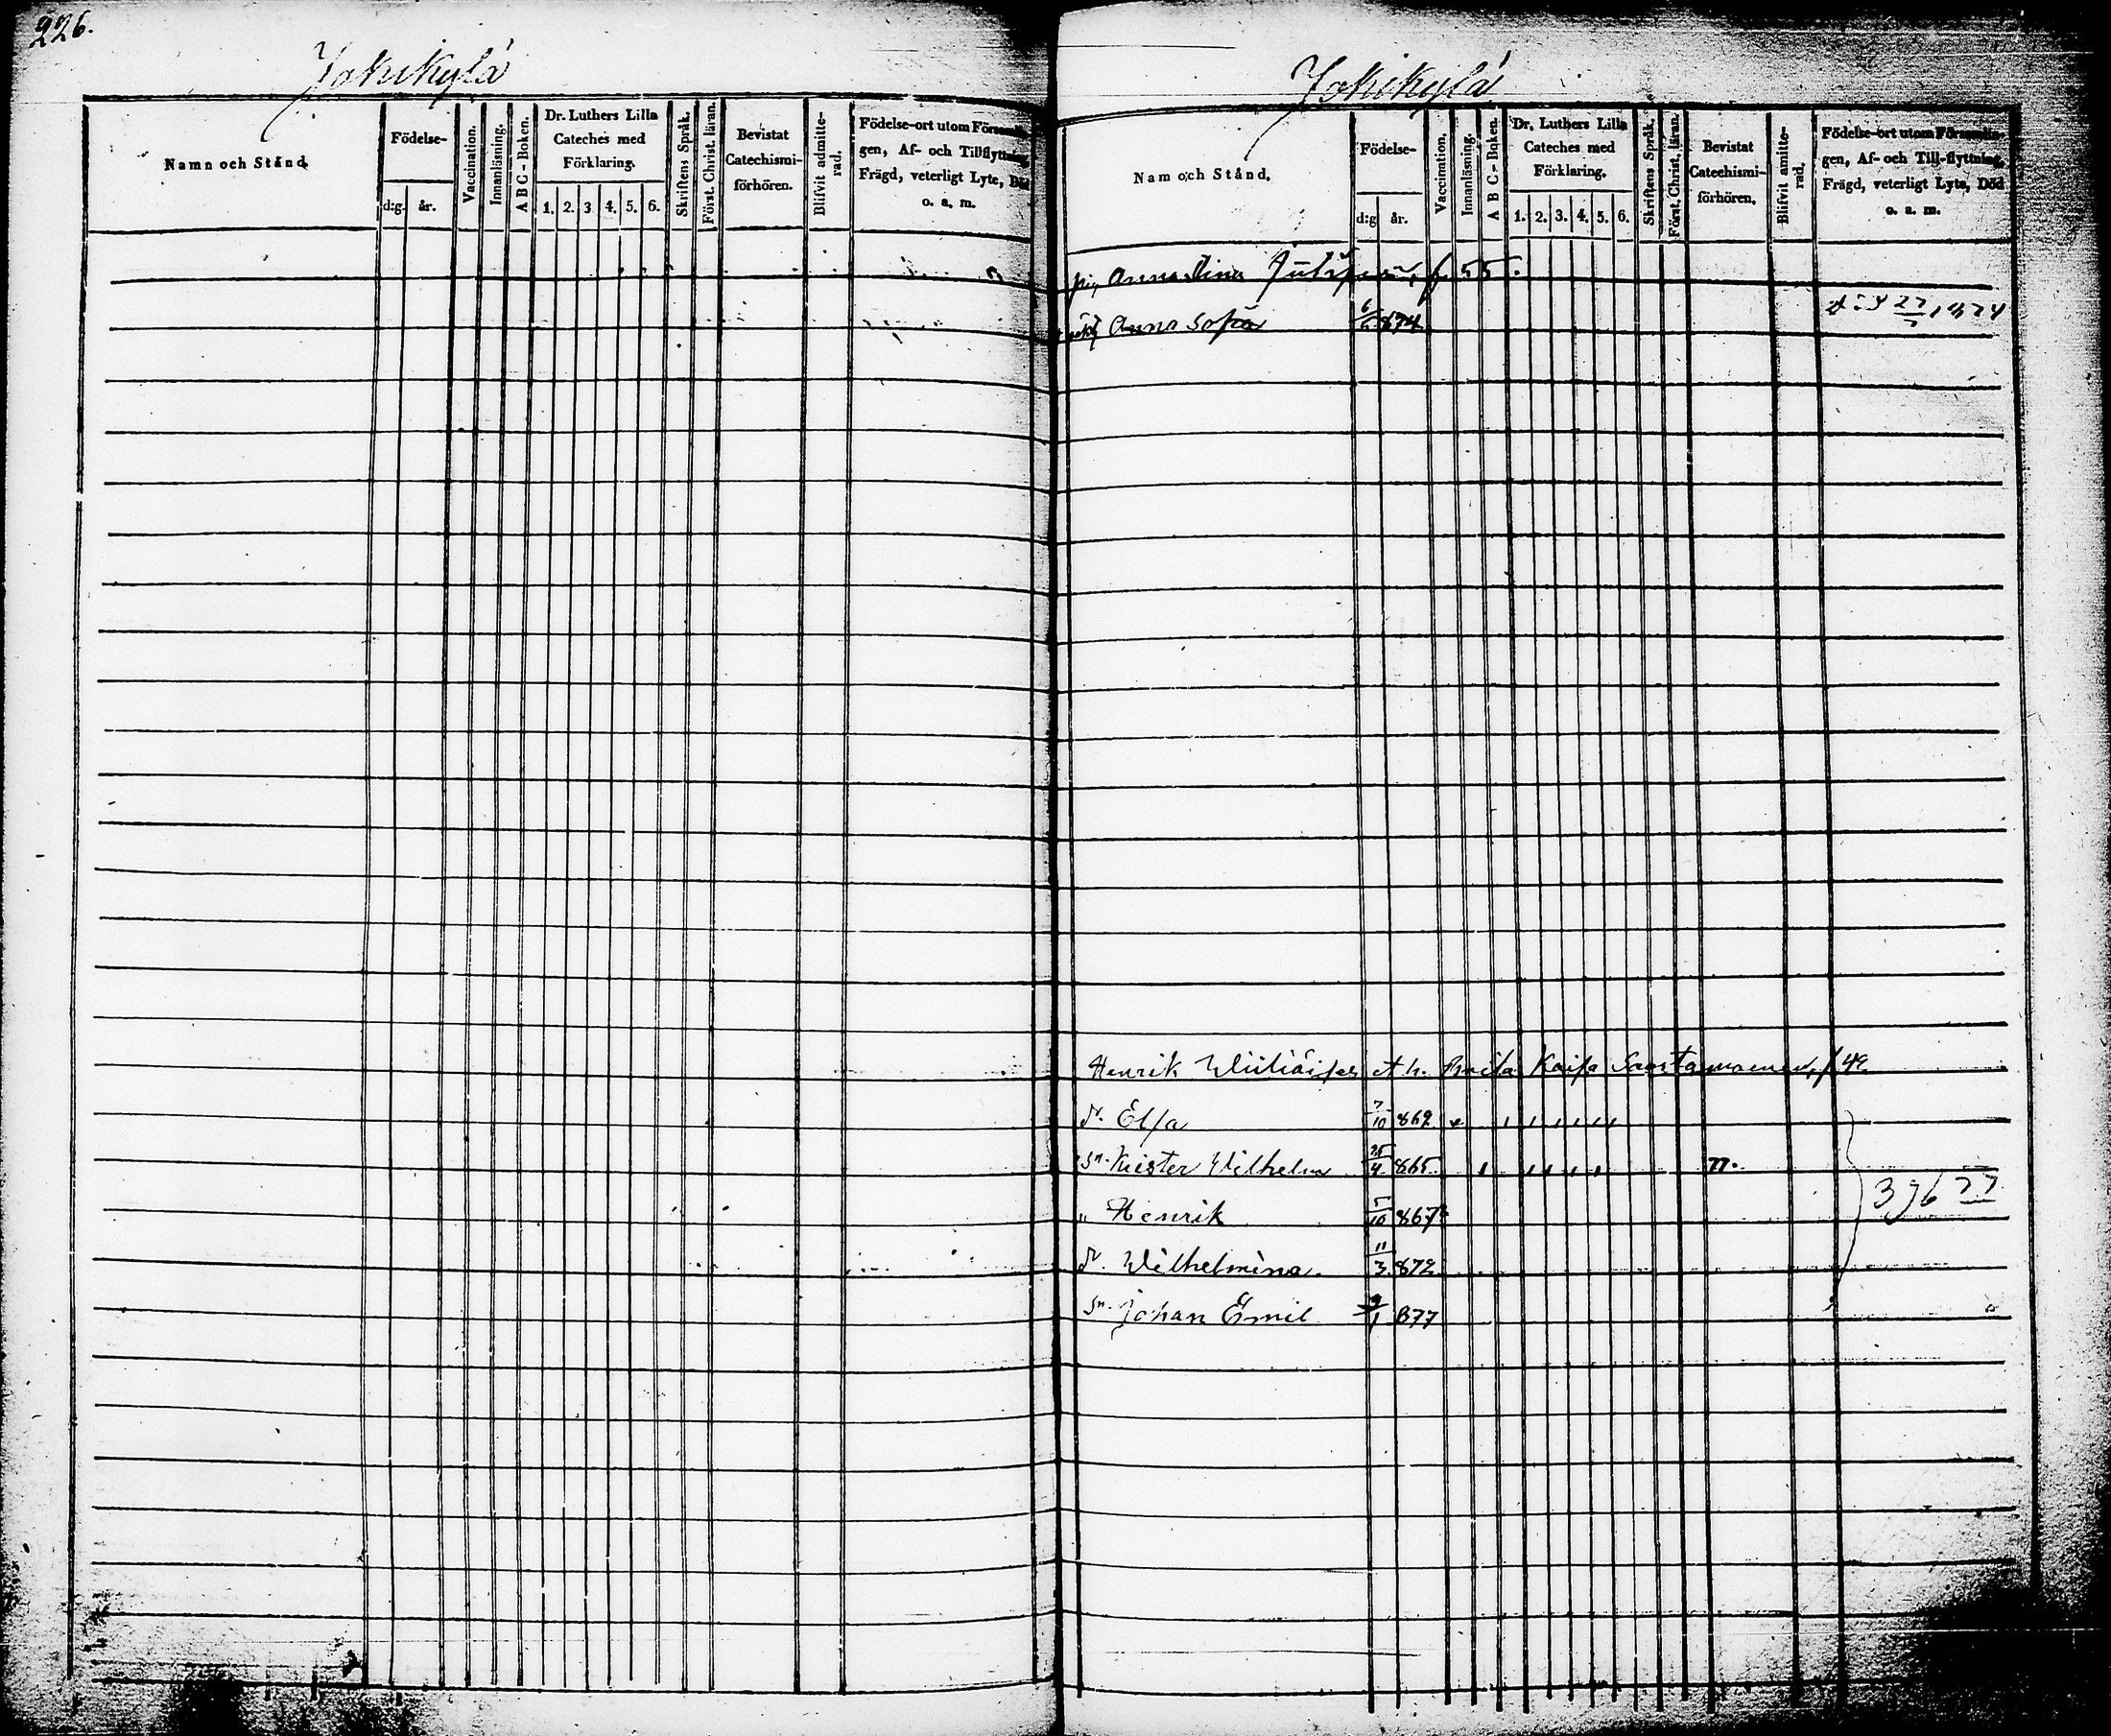 226.
Jokikylä
Namn och Stånd
Födelse-
d:g. år.
Vaccination.
Innanläsning.
A B C - Boken.
Dr. Luthers Lilla
Cateches med
Förklaring.
1. 2. 3. 4. 5. 6.
Skriftens Språk.
Först. Christ. läran.
Bevistat
Catechismi-
förhören.
Blifvit admitte-
rad.
Födelse-ort utom Försam
gen, Af- och Tillflyttning,
Frägd, veterligt Lyte, Död
o. a. m.
Jokikylä
Nam och Stånd.
Födelse-
d:g år.
Vaccination.
Innanläsning.
A B C - Boken.
Dr. Luthers Lilla
Cateches med
Förklaring.
1. 2. 3. 4. 5. 6.
Skriftens Språk.
Först. Christ. läran.
Bevistat
Catechismi-
förhören.
Blifvit admitte-
rad.
Födelse-ort utom Församlin-
gen, Af- och Till-flyttning,
Frägd, veterligt Lyte, Död
o. a. m.
pig Anna Stina f. 55.
Anna Sofia 6/6 874
Henrik et h. Brita Kaisa f. 49.
dr. Elsa 7/10 862
sn. Krister Wilhelm 25/4 865 77.
" Henrik 5/10 867
dr. Wilhelmina 11/3 872
sn. Johan Emil 9/1 877